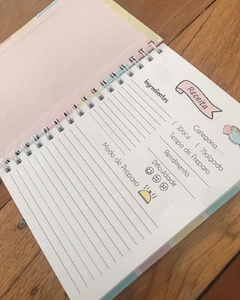 Receita
Ingredientes
Categoria
( )Doce ( )Salgado
Tempo de Preparo
Rendimento
Dificuldade
Modo de Preparo